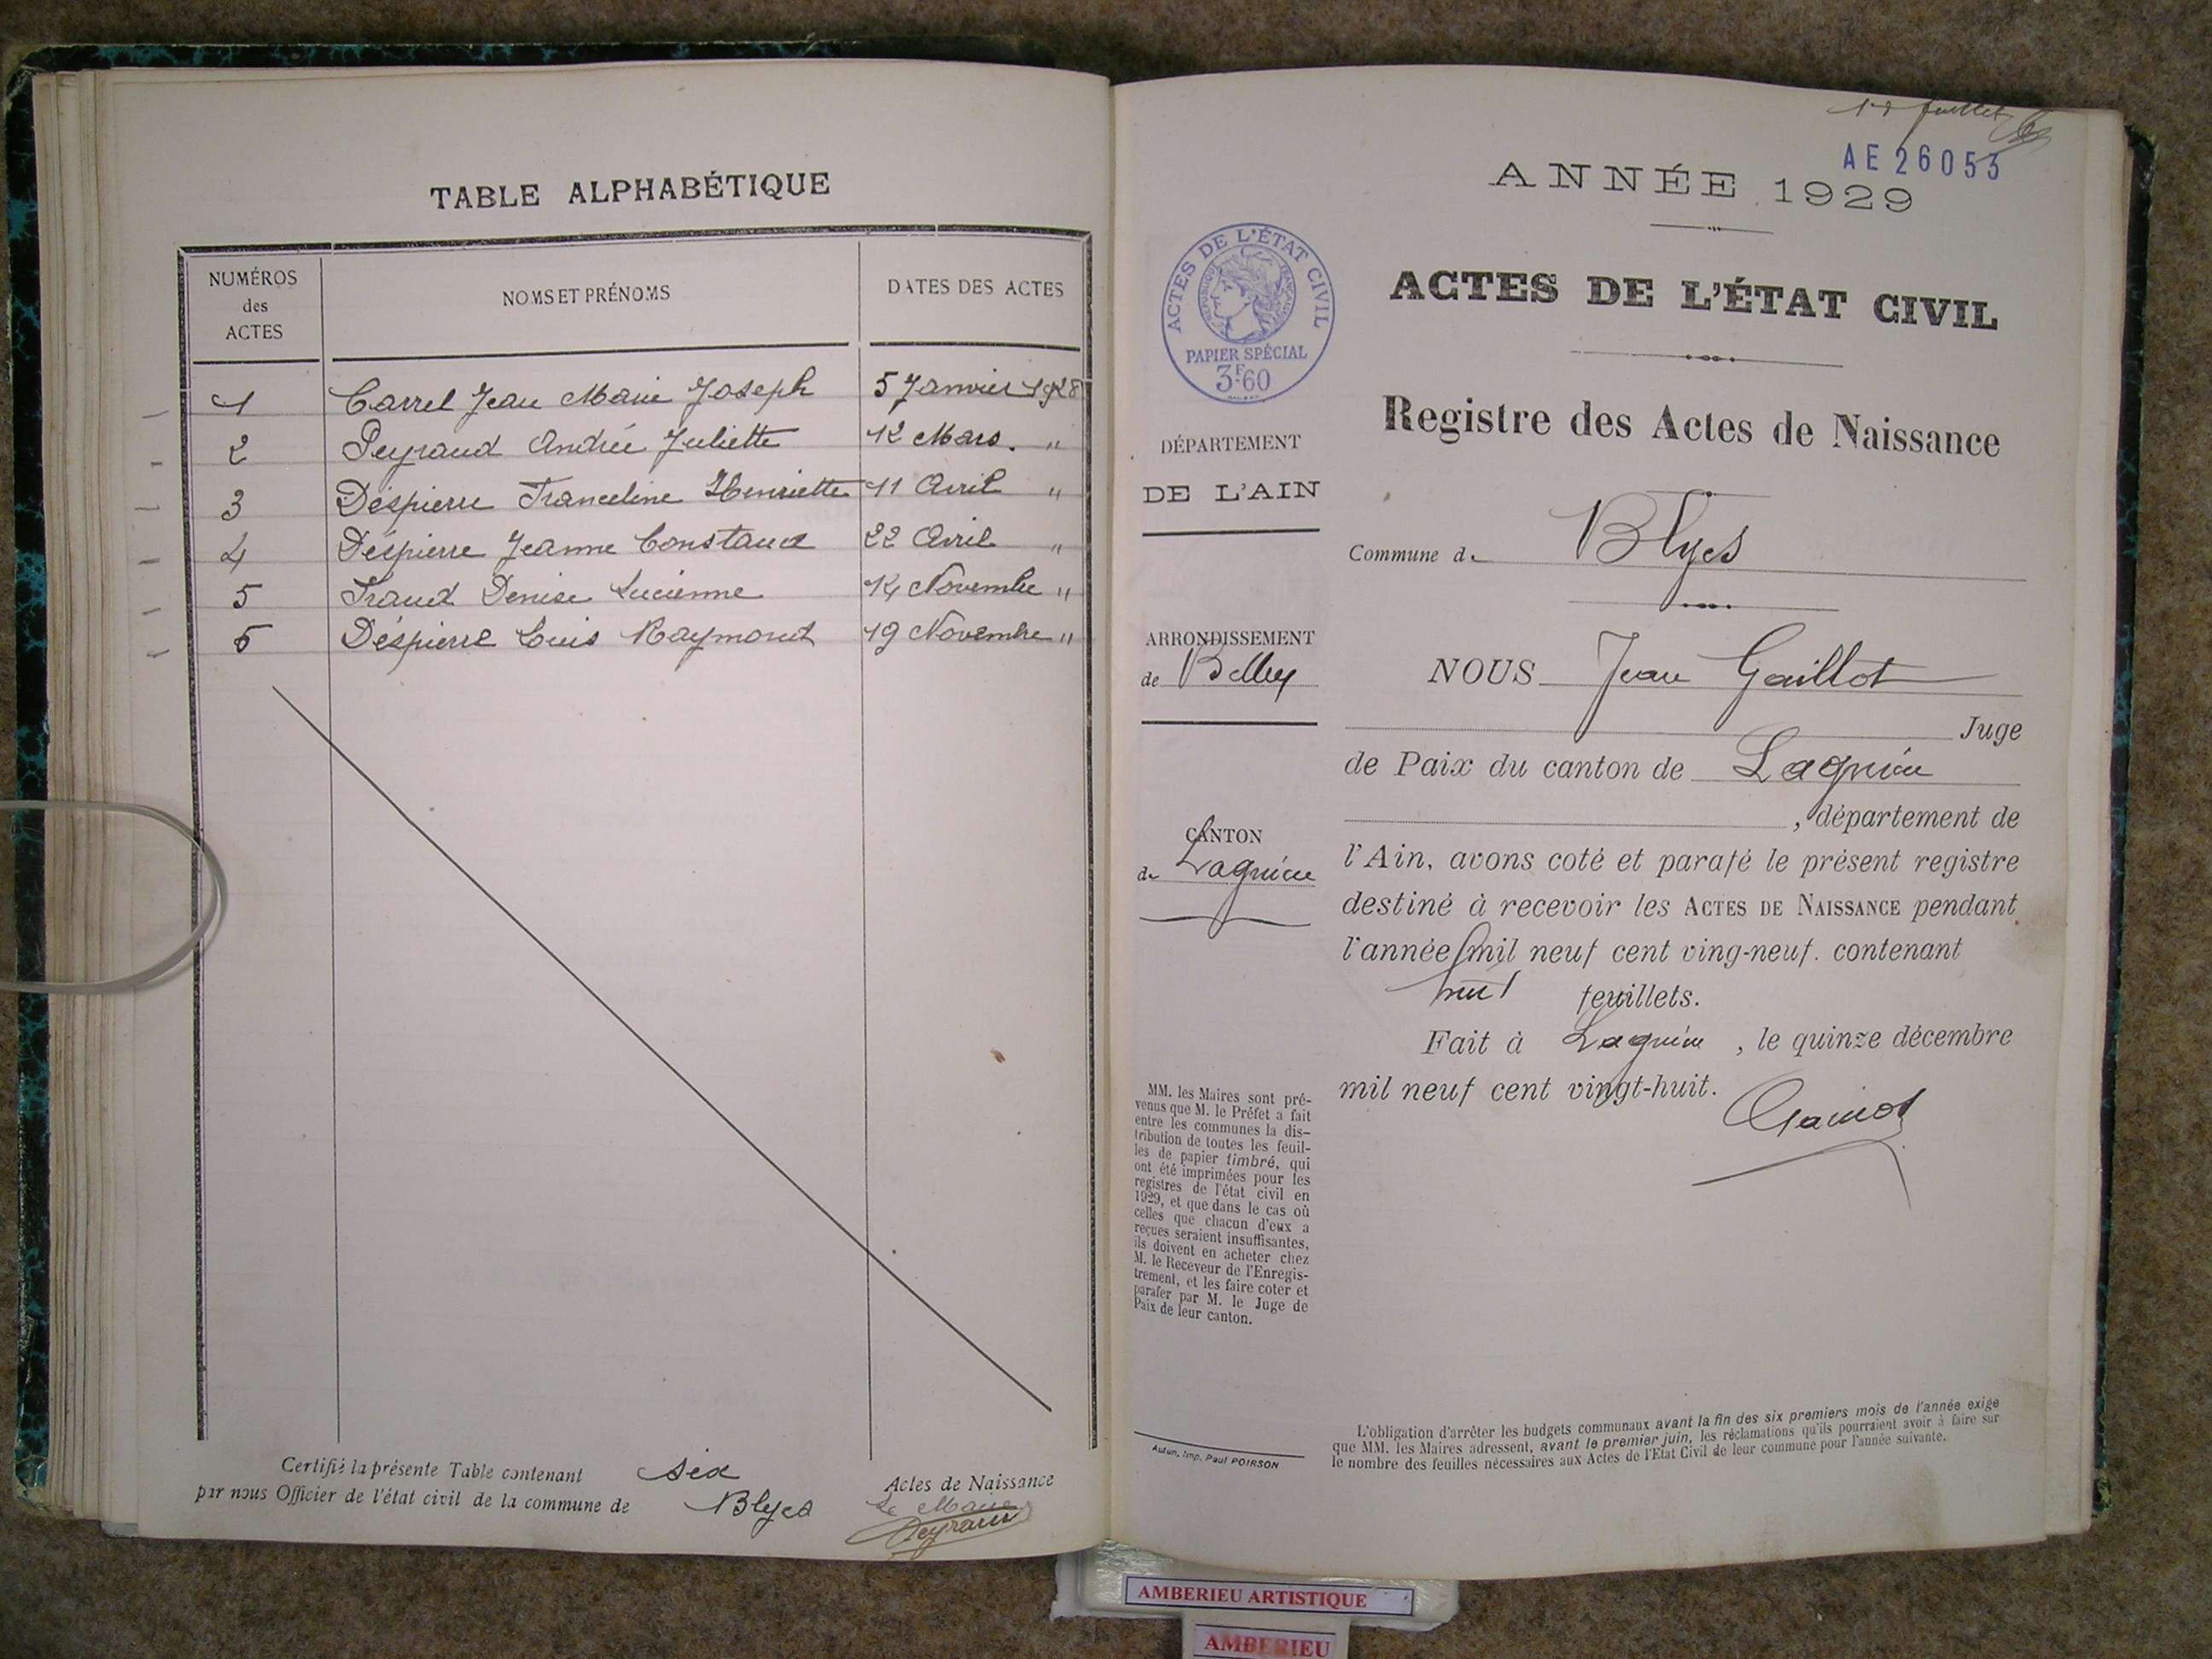 TABLE ALPHABÉTIQUE
NUMÉROS des ACTES
NOMS ET PRÉNOMS
DATES DES ACTES
1 Carrel Jean Marie Joseph 5 Janvier 1928
2 Peyraud Andrée Juliette 12 Mars. "
3 Déspierre Franceline Henriette 11 Avril "
4 Déspierre Jeanne Constance 22 Avril "
5 Fraud Denise Lucienne 14 Novembre "
6 Déspierre Louis Raymond 19 Novembre "
Certifié la présente Table contenant six Actes de Naissance
par nous Officier de l'état civil de la commune de Blyes
Le Maire
Peyraud
1er feuillet
AE 26053
ANNÉE 1929
ACTES DE L'ÉTAT CIVIL
ACTES DE L'ÉTAT CIVIL
RÉPUBLIQUE FRANÇAISE
PAPIER SPÉCIAL
3F.60
Registre des Actes de Naissance
DÉPARTEMENT
DE L'AIN
Commune de Blyes
ARRONDISSEMENT
de Belley
NOUS Jean Gaillot
Juge
de Paix du canton de Lagnieu
, département de
CANTON
de Lagnieu
l'Ain, avons coté et parafé le présent registre
destiné à recevoir les ACTES DE NAISSANCE pendant
l'année mil neuf cent ving-neuf. contenant
huit feuillets.
Fait à Lagnieu, le quinze décembre
mil neuf cent vingt-huit.
MM. les Maires sont pré-
venus que M. le Préfet a fait
entre les communes la dis-
tribution de toutes les feuil-
les de papier timbré, qui
ont été imprimées pour les
registres de l'état civil en
1929, et que dans le cas où
celles que chacun d'eux a
reçues seraient insuffisantes,
ils doivent en acheter chez
M. le Receveur de l'Enregis-
trement, et les faire coter et
parafer par M. le Juge de
Paix de leur canton.
Autun, Imp. Paul POIRSON
L'obligation d'arrêter les budgets communaux avant la fin des six premiers mois de l'année exige
que MM. les Maires adressent, avant le premier juin, les réclamations qu'ils pourraient avoir à faire sur
le nombre des feuilles nécessaires aux Actes de l'Etat Civil de leur commune pour l'année suivante.
AMBERIEU ARTISTIQUE
AMBERIEU